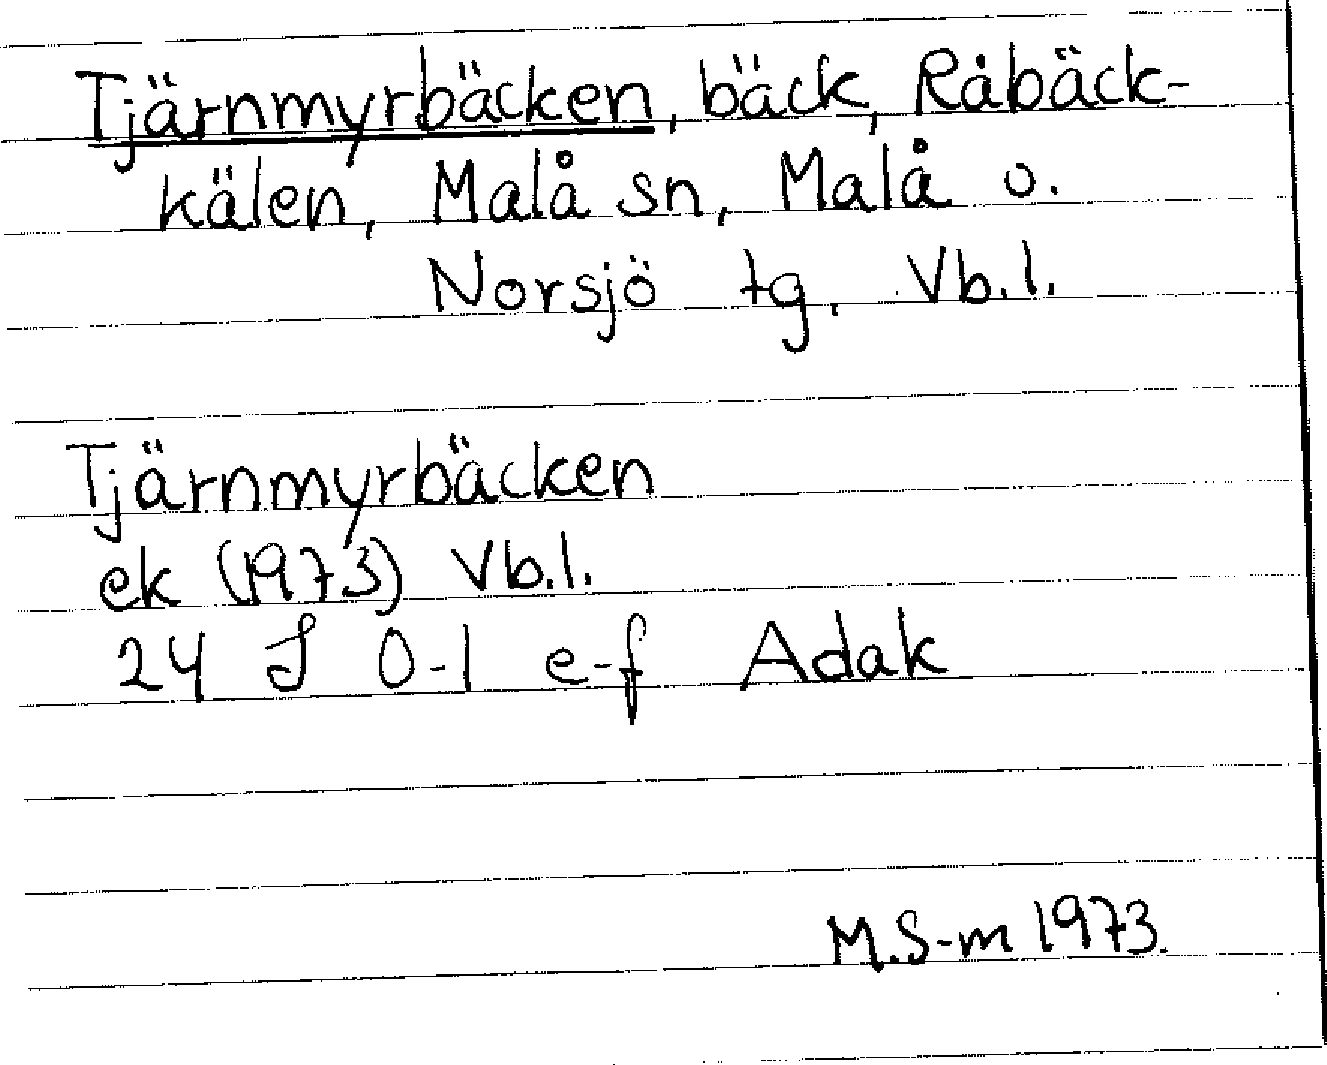 Tjärnmyrbäcken, bäck, Råbäck-
kälen, Malå sn, Malå o.
Norsjö tg. Vb.l.
Tjärnmyrbäcken
ek (1973) Vb.l.
24 J 0-1 e-f Adak
M.S-m 1973.